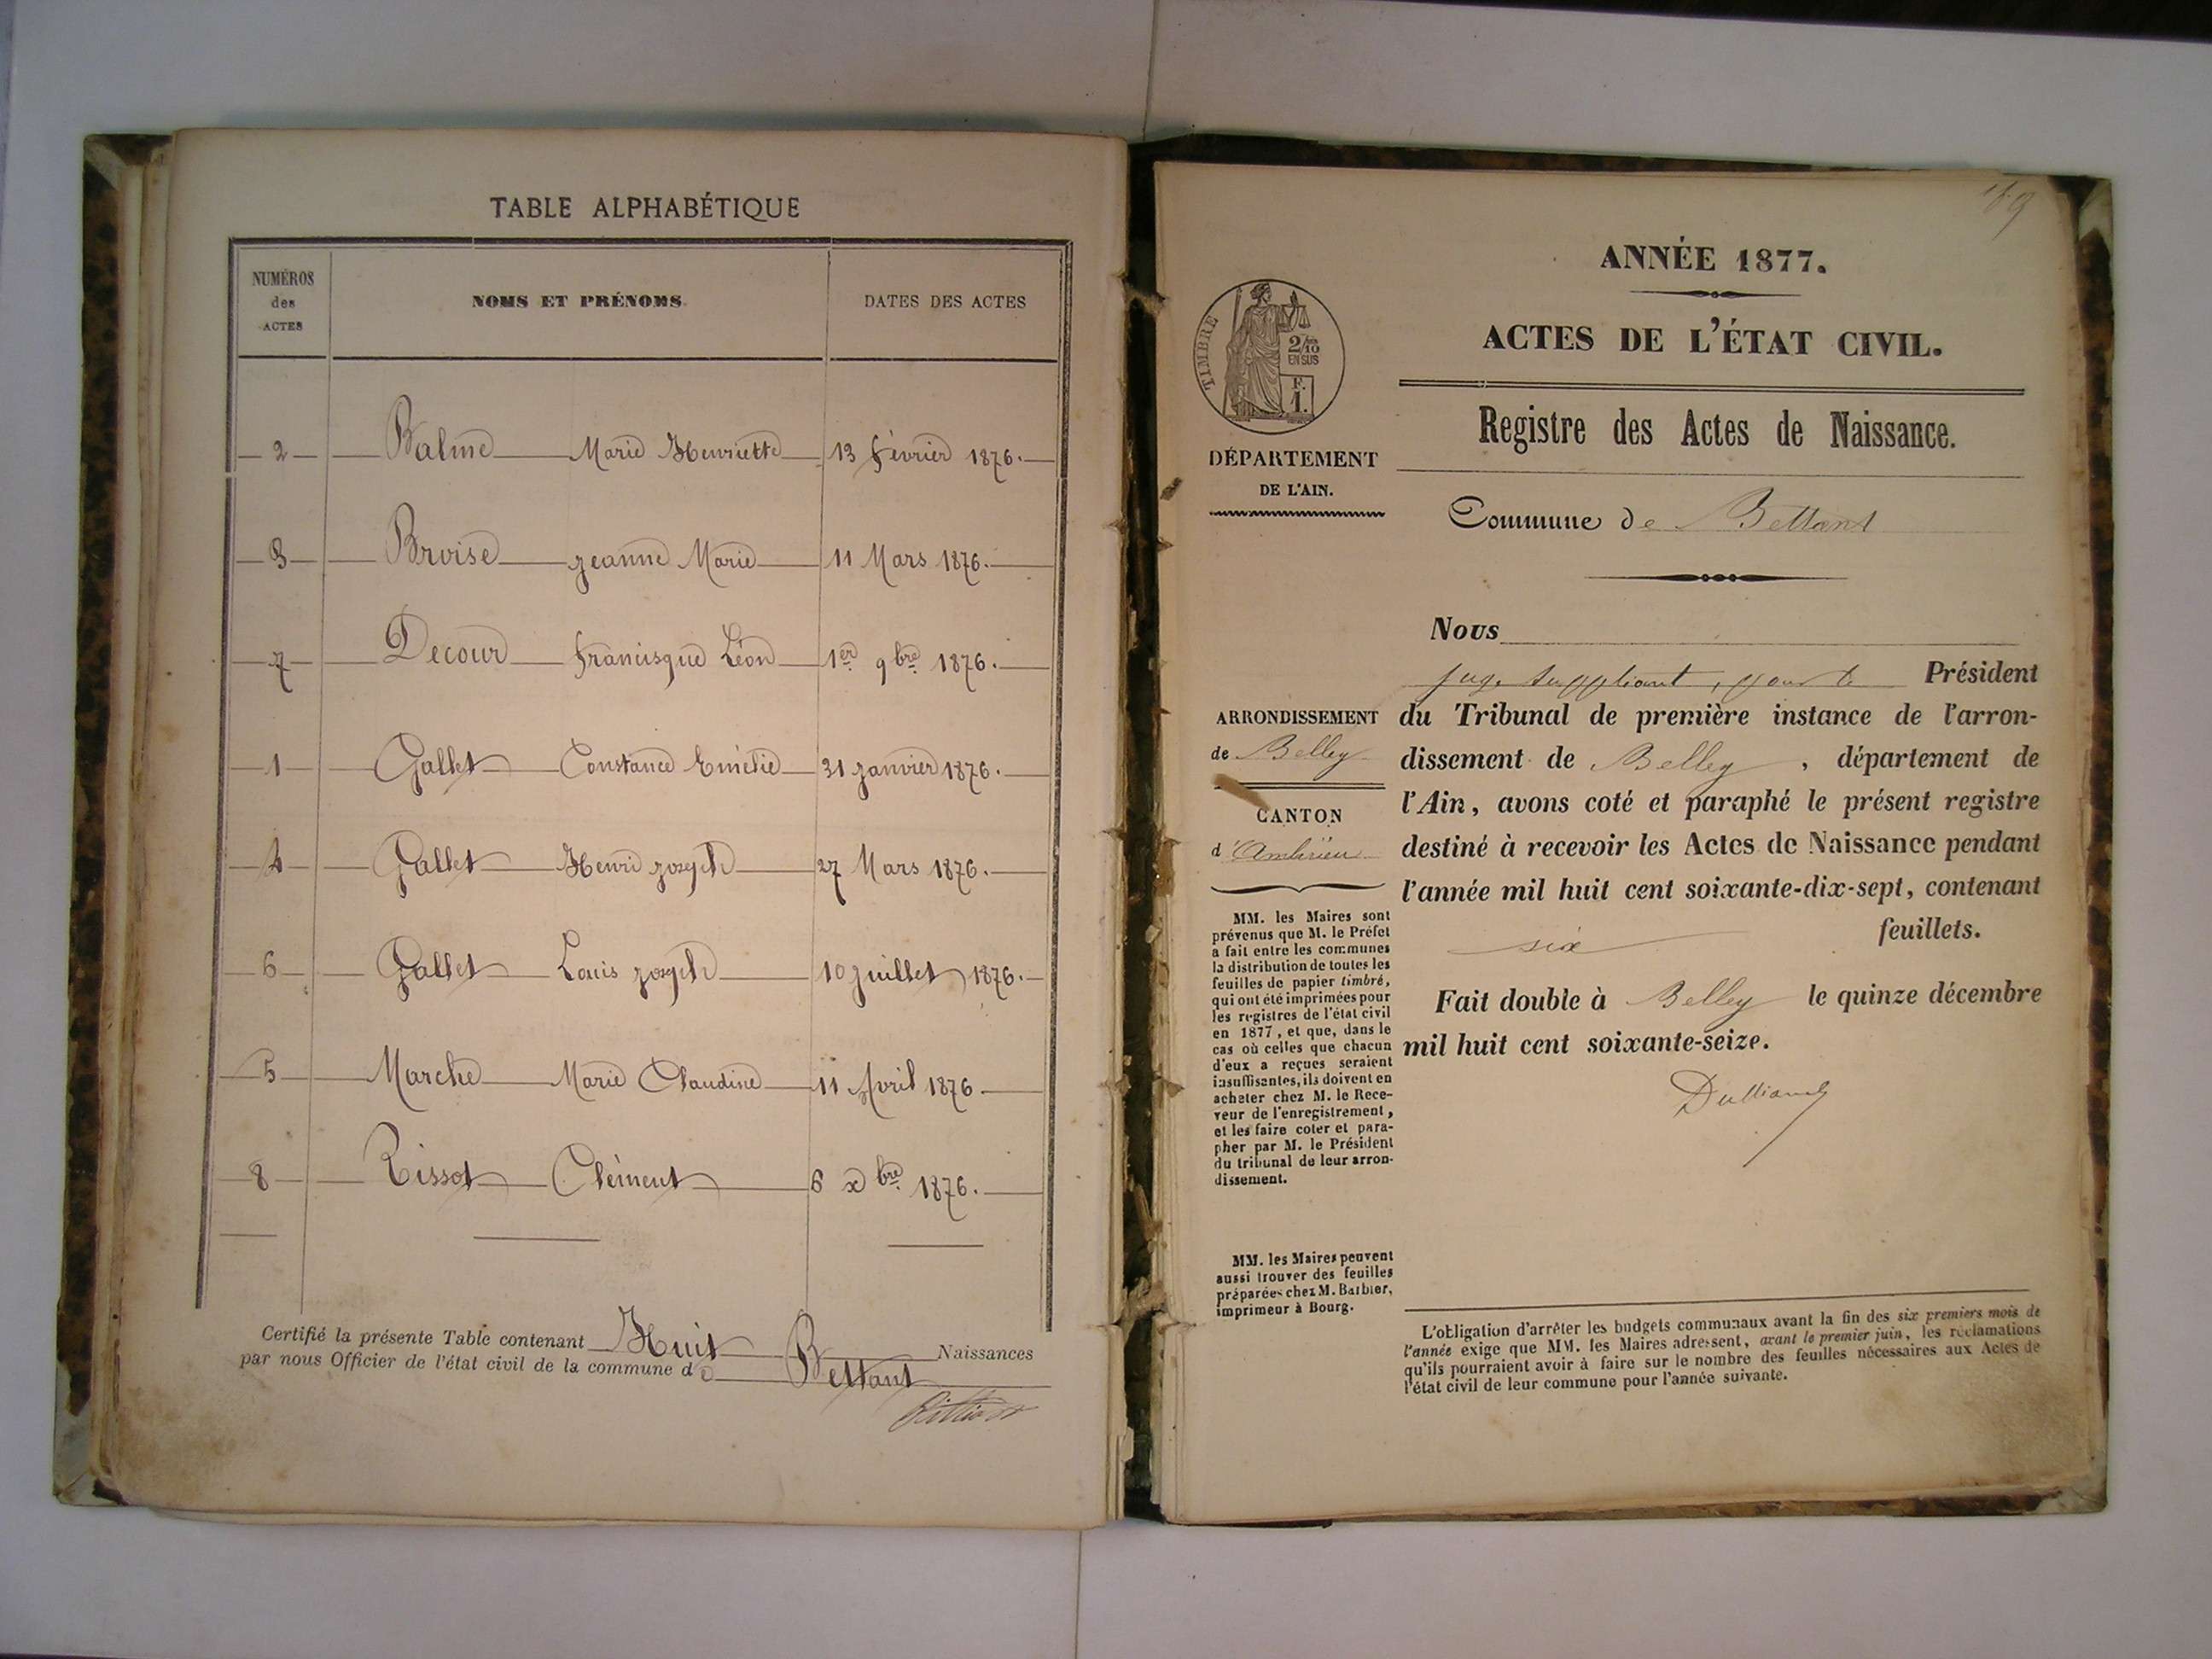 TABLE ALPHABÉTIQUE
NUMÉROS des ACTES NOMS ET PRÉNOMS DATES DES ACTES
2 Balme Marie Henriette 13 février 1876.
3 Broise Jeanne Marie 11 Mars 1876.
7 Decour Francisque Léon 1er 9bre 1876.
1 Gallet Constance Emélie 31 Janvier 1876.
4 Gallet Henri Joseph 27 Mars 1876.
6 Gallet Louis Joseph 10 Juillet 1876.
5 Marche Marie Claudine 11 Avril 1876
8 Rissot Clément 6 xbre 1876.
Certifié la présente Table contenant Huit Naissances
par nous Officier de l'état civil de la commune de Bettant
ANNÉE 1877.
ACTES DE L'ÉTAT CIVIL.
Registre des Actes de Naissance.
TIMBRE
2/10
EN SUS
F.
1.
DÉPARTEMENT
DE L'AIN.
Commune de Bettant
Nous
juge suppléant, pour le Président
du Tribunal de première instance de l'arron-
dissement de Belley, département de
l'Ain, avons coté et paraphé le présent registre
destiné à recevoir les Actes de Naissance pendant
l'année mil huit cent soixante-dix-sept, contenant
six feuillets.
Fait double à Belley le quinze décembre
mil huit cent soixante-seize.
ARRONDISSEMENT
de Belley
CANTON
d'Ambérieu
MM. les Maires sont
prévenus que M. le Préfet
a fait entre les communes
la distribution de toutes les
feuilles de papier timbré,
qui ont été imprimées pour
les registres de l'état civil
en 1877, et que, dans le
cas où celles que chacun
d'eux a reçues seraient
insuffisantes, ils doivent en
acheter chez M. le Rece-
veur de l'enregistrement,
et les faire coter et para-
pher par M. le Président
du tribunal de leur arron-
dissement.
MM. les Maires peuvent
aussi trouver des feuilles
préparées chez M. Barbier,
imprimeur à Bourg.
L'obligation d'arrêter les budgets communaux avant la fin des six premiers mois de
l'année exige que MM. les Maires adressent, avant le premier juin, les réclamations
qu'ils pourraient avoir à faire sur le nombre des feuilles nécessaires aux Actes de
l'état civil de leur commune pour l'année suivante.